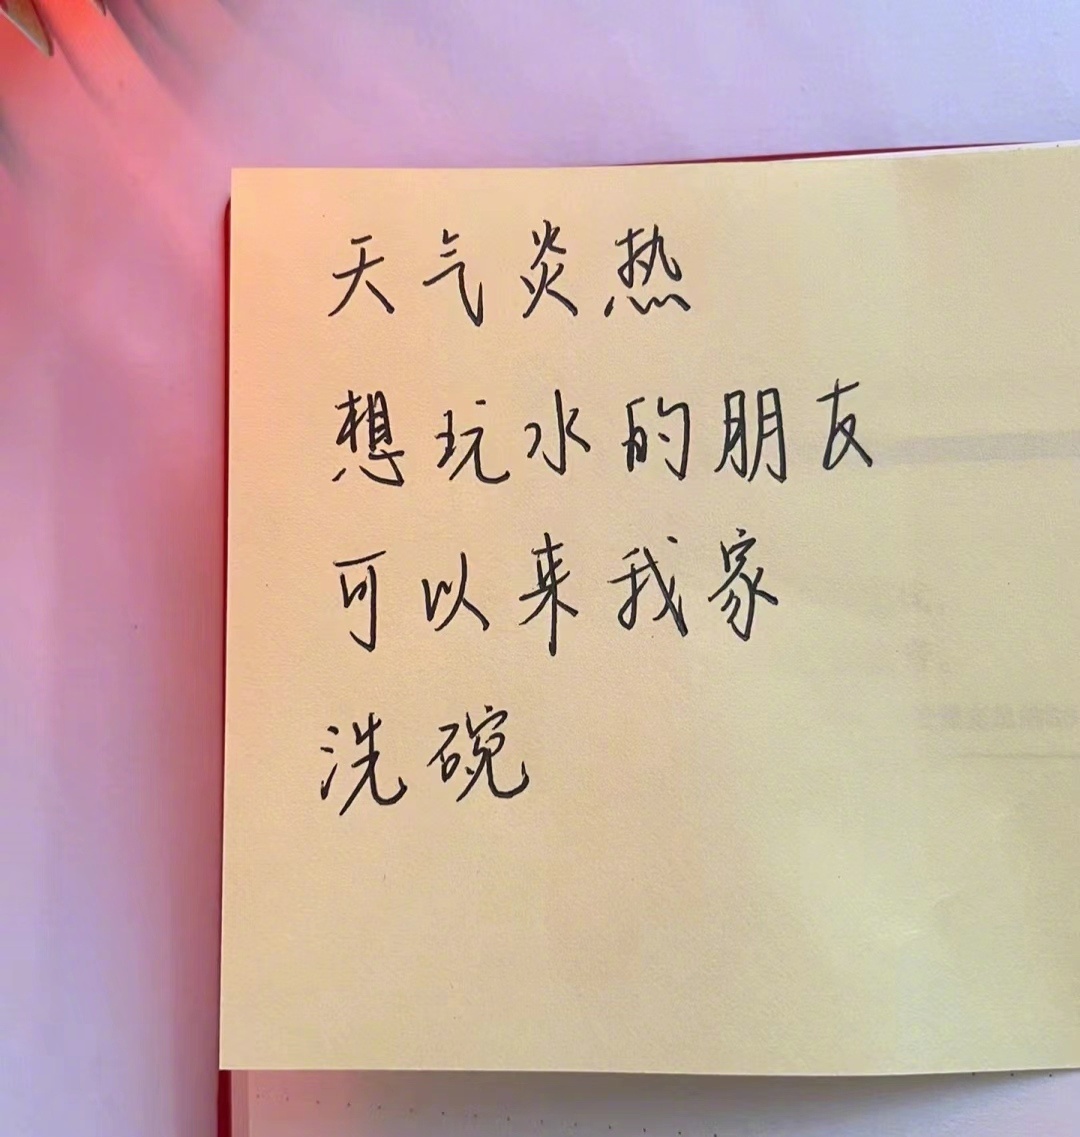 天气炎热
想玩水的朋友
可以来我家
洗碗